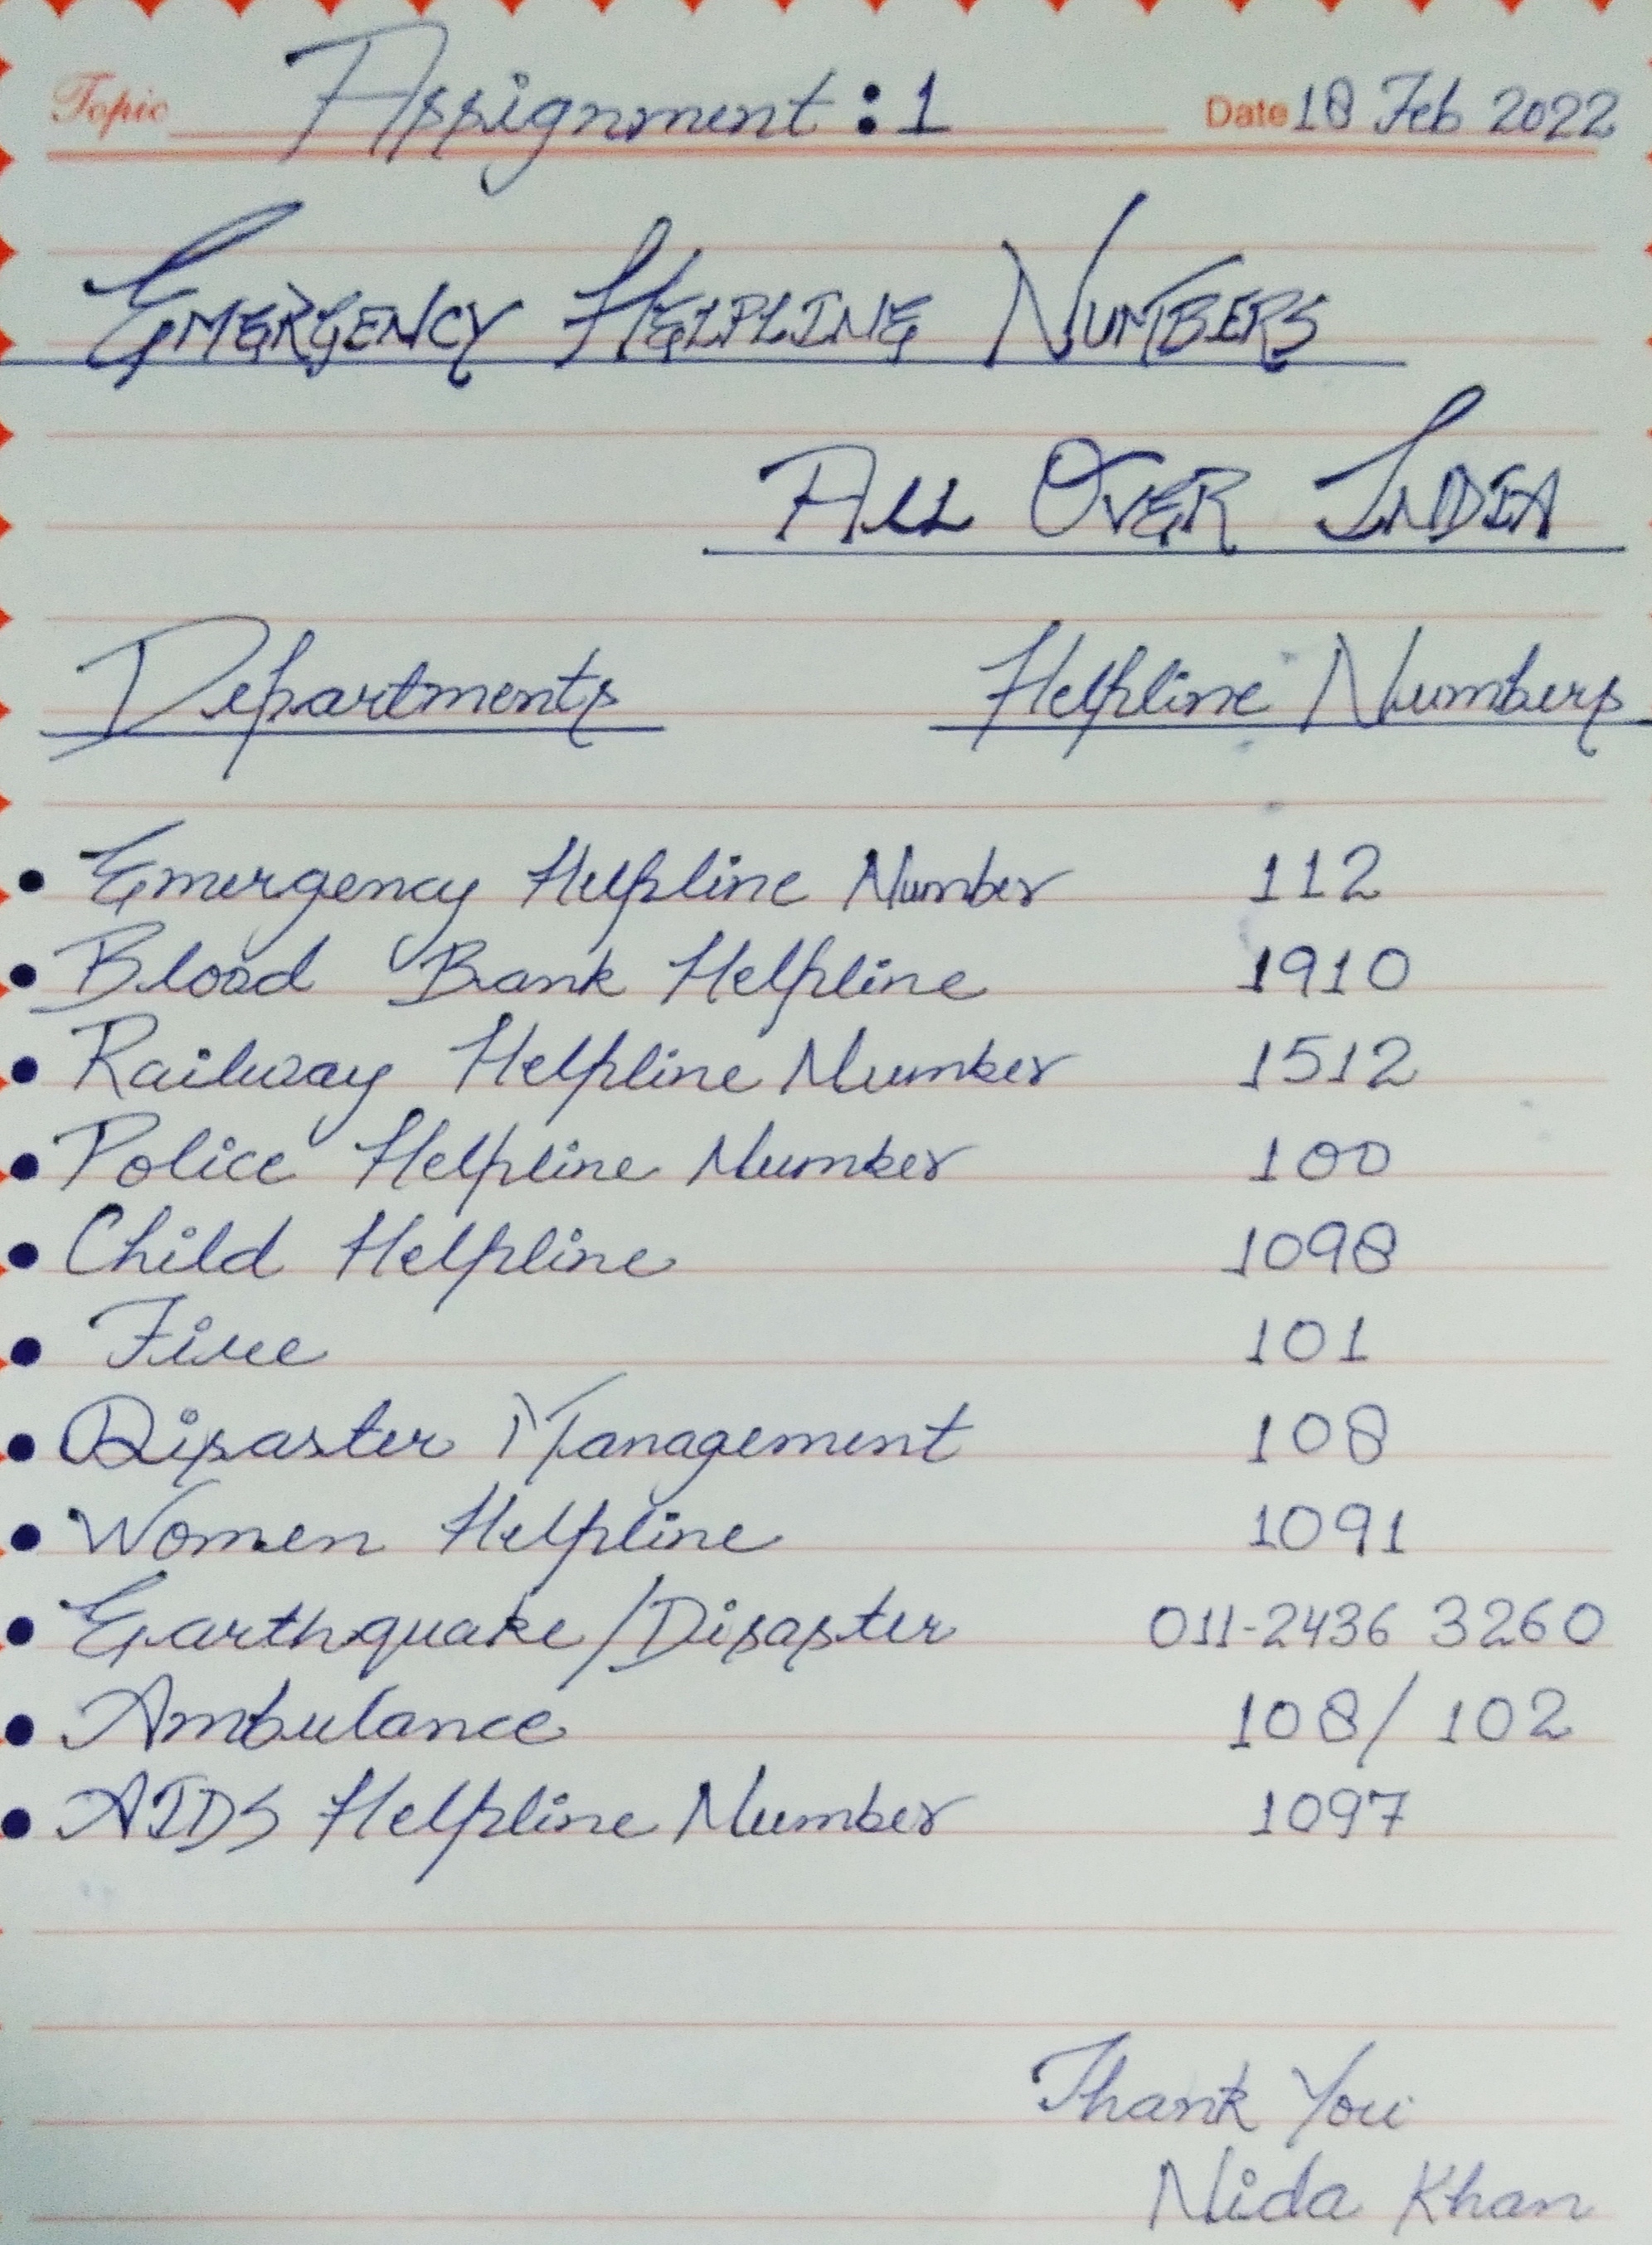 Topic Assignment : 1 Date 18 Feb 2022
EMERGENCY HELPLINE NUMBERS
ALL OVER INDIA
Departments Helpline Numbers
• Emergency Helpline Number 112
• Blood Bank Helpline 1910
• Railway Helpline Number 1512
• Police Helpline Number 100
• Child Helpline 1098
• Fire 101
• Disaster Management 108
• Women Helpline 1091
• Earthquake/Disaster 011-2436 3260
• Ambulance 108/ 102
• AIDS Helpline Number 1097
Thank You
Nida Khan